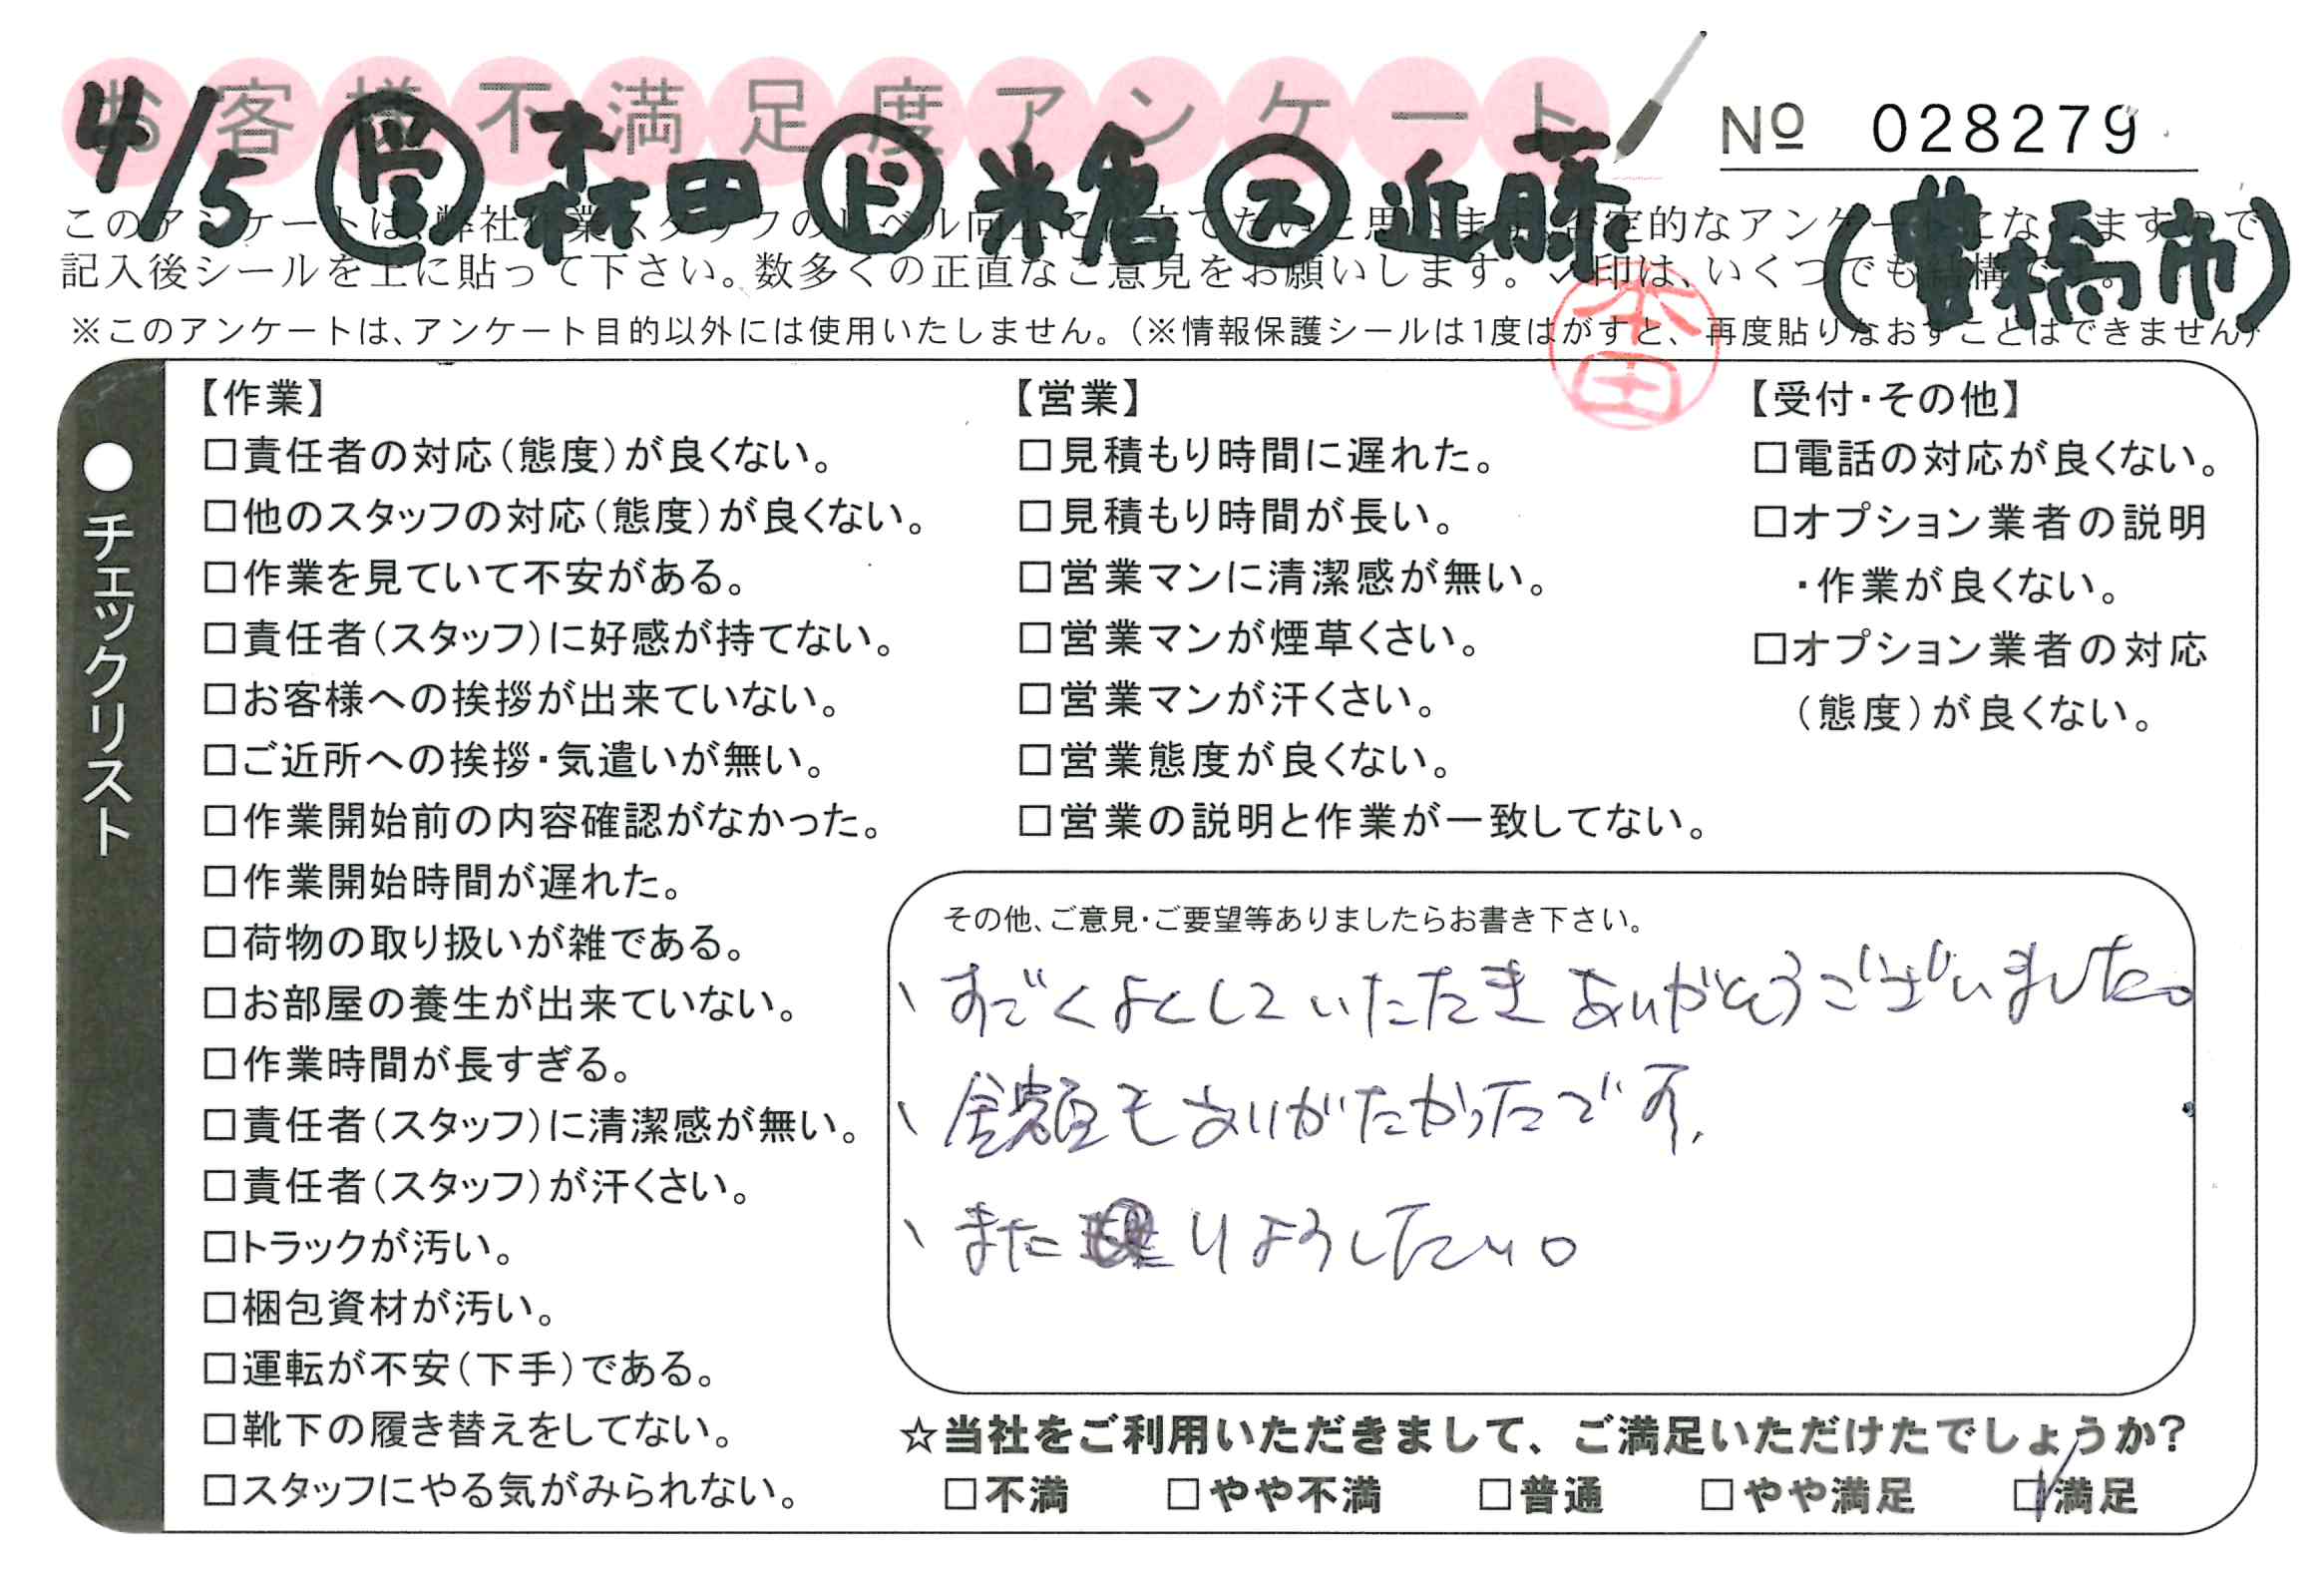 お客様不満足度アンケート
№ 028279
4/5 営 森田 ド 米倉 ス 近藤 (豊橋市)
このアンケートは、弊社作業スタッフのレベル向上に役立てたいと思います。否定的なアンケートになりますので
記入後シールを上に貼って下さい。数多くの正直なご意見をお願いします。✓印は、いくつでも結構です。
※このアンケートは、アンケート目的以外には使用いたしません。(※情報保護シールは1度はがすと、再度貼りなおすことはできません)
本田
●チェックリスト
【作業】
□責任者の対応(態度)が良くない。
□他のスタッフの対応(態度)が良くない。
□作業を見ていて不安がある。
□責任者(スタッフ)に好感が持てない。
□お客様への挨拶が出来ていない。
□ご近所への挨拶・気遣いが無い。
□作業開始前の内容確認がなかった。
□作業開始時間が遅れた。
□荷物の取り扱いが雑である。
□お部屋の養生が出来ていない。
□作業時間が長すぎる。
□責任者(スタッフ)に清潔感が無い。
□責任者(スタッフ)が汗くさい。
□トラックが汚い。
□梱包資材が汚い。
□運転が不安(下手)である。
□靴下の履き替えをしてない。
□スタッフにやる気がみられない。
【営業】
□見積もり時間に遅れた。
□見積もり時間が長い。
□営業マンに清潔感が無い。
□営業マンが煙草くさい。
□営業マンが汗くさい。
□営業態度が良くない。
□営業の説明と作業が一致してない。
【受付・その他】
□電話の対応が良くない。
□オプション業者の説明
・作業が良くない。
□オプション業者の対応
(態度)が良くない。
その他、ご意見・ご要望等ありましたらお書き下さい。
、すごくよくしていただきありがとうございました。
、金額もありがたかったです。
、またりようしたい。
☆当社をご利用いただきまして、ご満足いただけたでしょうか?
□不満 □やや不満 □普通 □やや満足 ☑満足